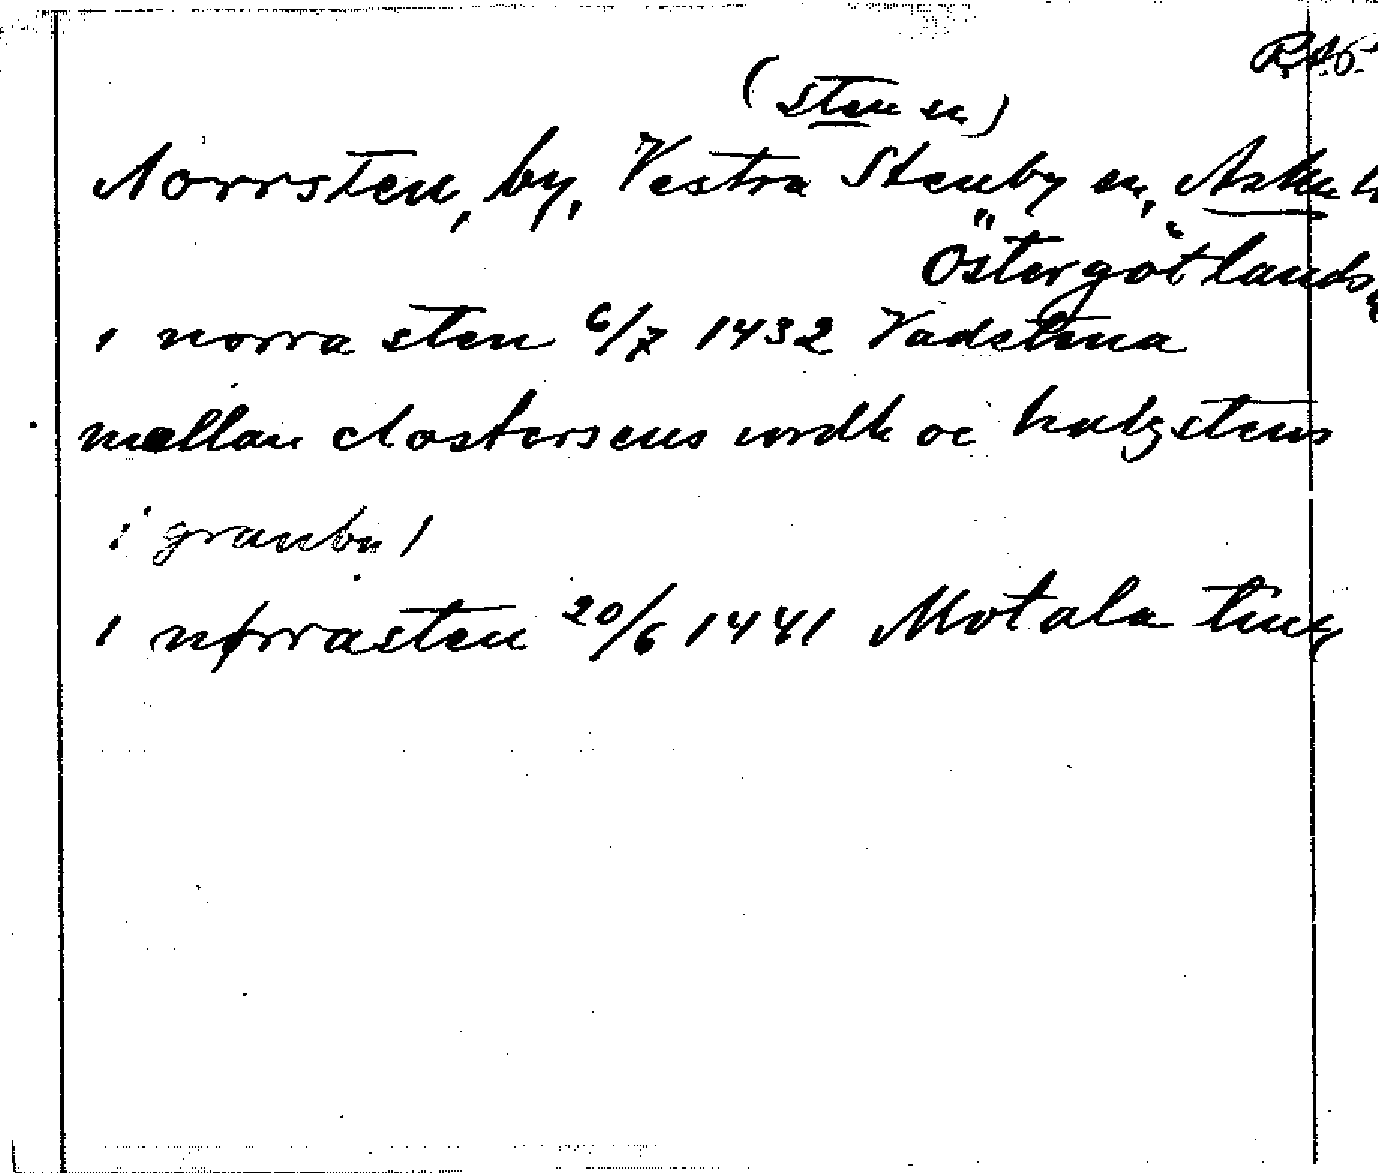 R.A.P.
(Sten sn)
Norrsten, by, Vestra Stenby sn, Aska h
Östergötlands
i norra sten 6/7 1432 Vadstena
mellan closterseus ok
i granby /
i nørrasten 20/6 1441 Motala ting